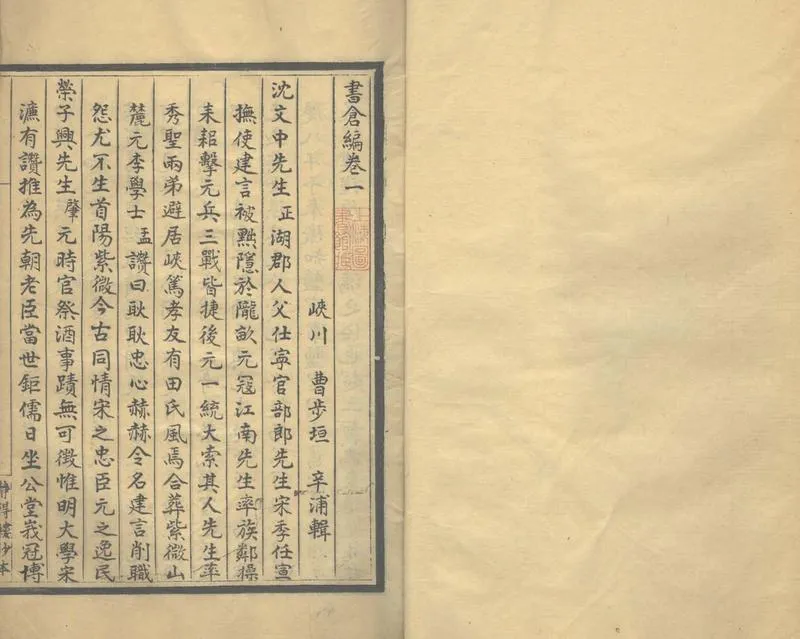 書倉編卷一
峽川 曹步垣 辛浦輯
沈文中先生正湖郡人父仕寧官部郎先生宋季任宣
撫使建言被黜隱於隴畝元冦江南先生率族鄰操
耒耜擊元兵三戰皆捷後元一統大索其人先生率
秀聖兩弟避居峽篤孝友有田氏風焉合葬紫微山
麓元李學士孟讚曰耿耿忠心赫赫令名建言削職
怨尤不生首陽紫微今古同情宋之忠臣元之逸民
榮子興先生肇元時官祭酒事蹟無可徵惟明大學宋
濂有讚推為先朝老臣當世鉅儒日坐公堂峩冠博
静得樓沙本